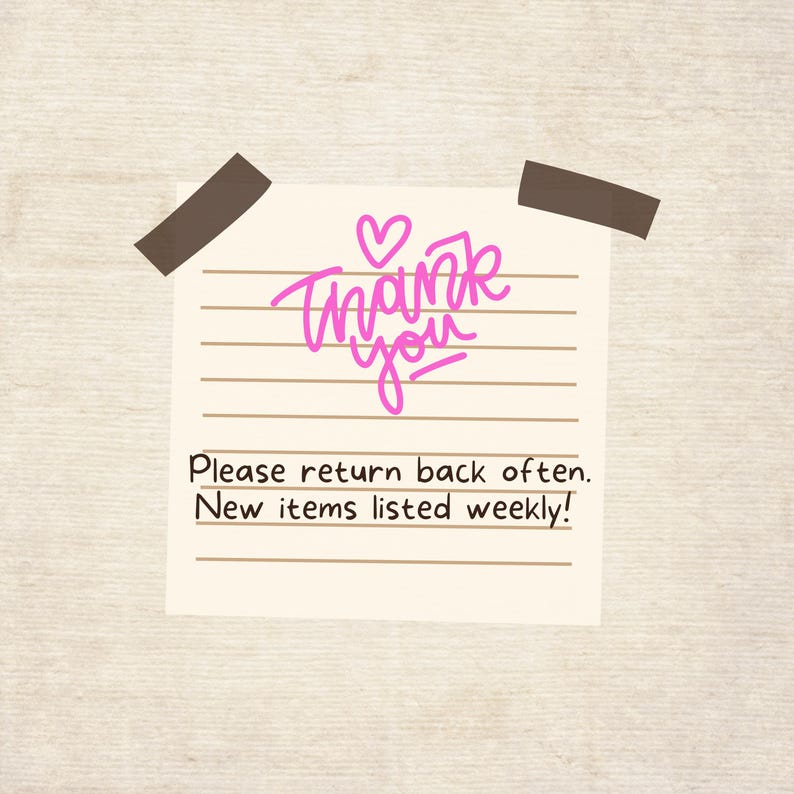 Thank
you
Please return back often.
New items listed weekly!